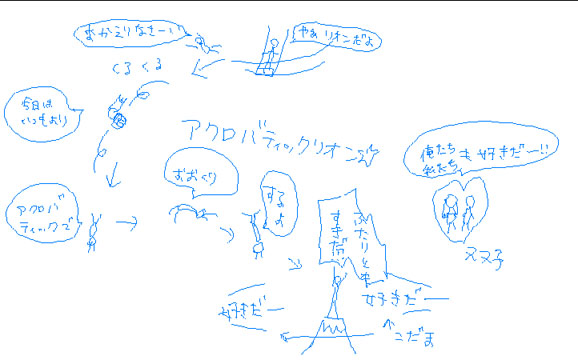 やぁ リオンだよ
おかえりなさーい
くるくる
今日は
いつもより
アクロバティックリオン☆
アクロバ
ティックで
おおくり
するよ
ふたりとも
すきだ
好きだー
好きだー
↑こだま
俺たち
私たち
も 好きだー!!
ヌヌ子